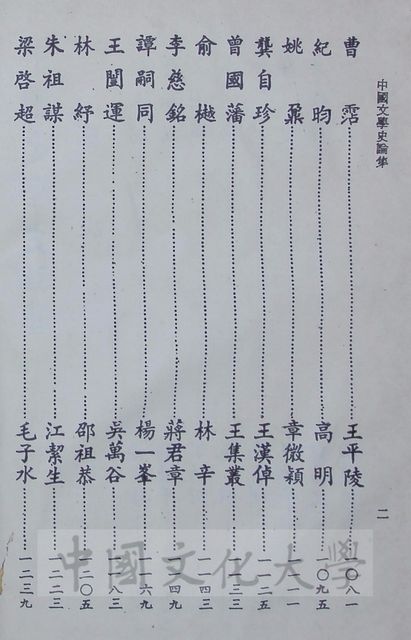 中國文學史論集
二
曹霑……王平陵……一〇八一
紀昀……高明……一〇九五
姚鼐……章微穎……一一一一
龔自珍……王漢倬……一一二五
曾國藩……王集叢……一一三三
俞樾……林辛……一一四三
李慈銘……蔣君章……一一四九
譚嗣同……楊一峯……一一六九
王闓運……吳萬谷……一一八三
林紓……邵祖恭……一二〇五
朱祖謀……江絜生……一二二三
梁啓超……毛子水……一二三九
中國文化大學